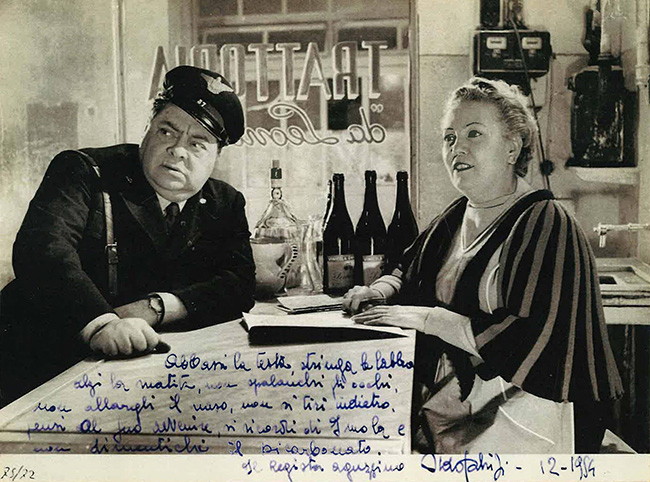 TRATTORIA
"da Leoni
37
Abbassi la testa, stringa le labbra
alzi la matita, non spalanchi gli occhi,
non allarghi il naso, non si tiri indietro,
pensi al suo avvenire, si ricordi di Imola e
non dimentichi il bicarbonato.
Il regista aguzzino Aldo Fabrizi - 12-1954
75/22